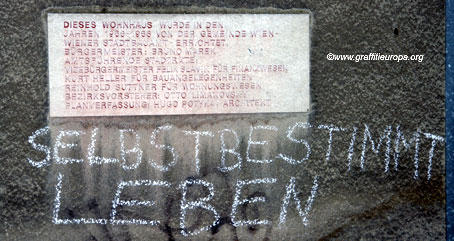 DIESES WOHNHAUS WURDE IN DEN
JAHREN VON DER GEMEINDE WIEN-
WIENER STADTBAUAMT ERRICHTET.
BÜRGERMEISTER: BRUNO MAREK
AMTSFÜHRENDE STADTRÄTE:
VIZEBÜRGERMEISTER FELIX SLAVIK FÜR FINANZWESEN,
KURT HELLER FÜR BAUANGELEGENHEITEN
REINHOLD SUTTNER FÜR WOHNUNGSWESEN
BEZIRKSVORSTEHER: OTTO
PLANVERFASSUNG: HUGO POTYKA, ARCHITEKT
©www.graffitieuropa.org
SELBSTBESTIMMT
LEBEN